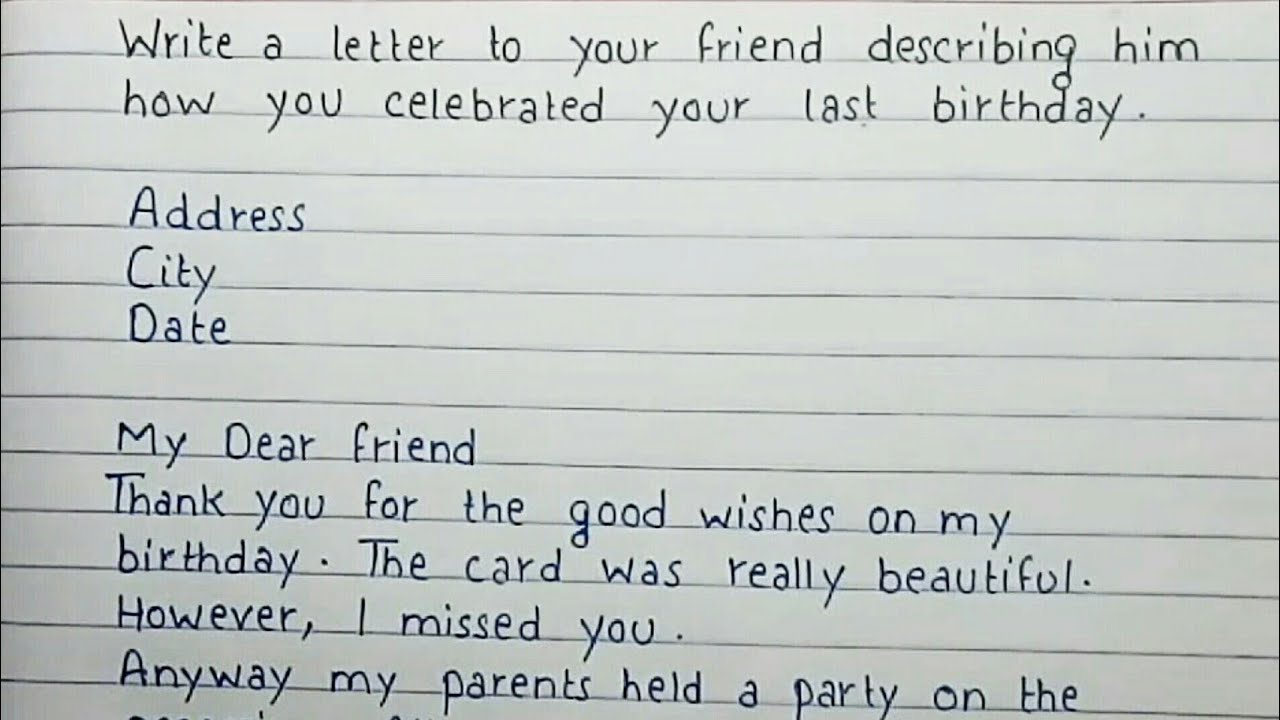 Write a letter to your friend describing him
how you celebrated your last birthday.
Address
City
Date
My Dear friend
Thank you for the good wishes on my
birthday. The card was really beautiful.
However, I missed you.
Anyway my parents held a party on the